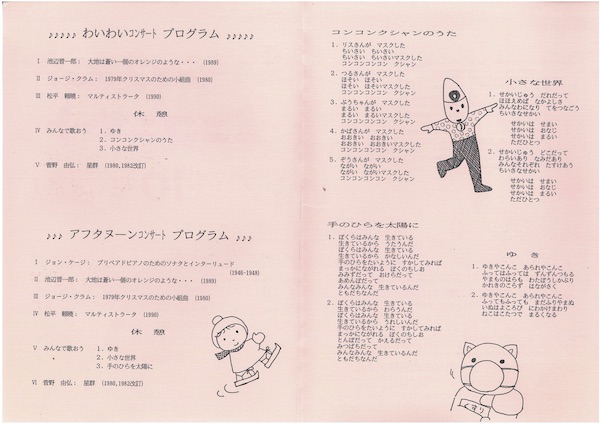 ♪♪♪♪♪ わいわいコンサート プログラム ♪♪♪♪♪
Ⅰ 池辺晋一郎： 大地は蒼い一個のオレンジのような・・・ (1989)
Ⅱ ジョージ・クラム： 1979年クリスマスのための小組曲 (1980)
Ⅲ 松平 頼暁： マルティストラータ (1990)
休 憩
Ⅳ みんなで歌おう 1．ゆき
2．コンコンクシャンのうた
3．小さな世界
Ⅴ 菅野 由弘： 星群 (1980,1983改訂)
♪♪♪ アフタヌーンコンサート プログラム ♪♪♪
Ⅰ ジョン・ケージ： プリペアドピアノのためのソナタとインターリュード
(1946-1948)
Ⅱ 池辺晋一郎： 大地は蒼い一個のオレンジのような・・・ (1989)
Ⅲ ジョージ・クラム： 1979年クリスマスのための小組曲 (1980)
Ⅳ 松平 頼暁： マルティストラータ (1990)
休 憩
Ⅴ みんなで歌おう 1．ゆき
2．小さな世界
3．手のひらを太陽に
Ⅵ 菅野 由弘： 星群 (1980,1983改訂)
コンコンクシャンのうた
1．リスさんが マスクした
ちいさい ちいさい
ちいさい ちいさいマスクした
コンコンコンコン クシャン
2．つるさんが マスクした
ほそい ほそい
ほそい ほそいマスクした
コンコンコンコン クシャン
3．ぶうちゃんが マスクした
まるい まるい
まるい まるいマスクした
コンコンコンコン クシャン
4．かばさんが マスクした
おおきい おおきい
おおきい おおきいマスクした
コンコンコンコン クシャン
5．ぞうさんが マスクした
ながい ながい
ながい ながいマスクした
コンコンコンコン クシャン
小さな世界
1．せかいじゅう だれだって
ほほえめば なかよしさ
みんなわになり てをつなごう
ちいさなせかい
せかいは せまい
せかいは おなじ
せかいは まるい
ただひとつ
2．せかいじゅう どこだって
わらいあり なみだあり
みんなそれぞれ たすけあう
ちいさなせかい
せかいは せまい
せかいは おなじ
せかいは まるい
ただひとつ
手のひらを太陽に
1．ぼくらはみんな 生きている
生きているから うたうんだ
ぼくらはみんな 生きている
生きているから かなしいんだ
手のひらをたいように すかしてみれば
まっかにながれる ぼくのちしお
みみずだって おけらだって
あめんぼだって
みんなみんな 生きているんだ
ともだちなんだ
2．ぼくらはみんな 生きている
生きているから わらうんだ
ぼくらはみんな 生きている
生きているから うれしいんだ
手のひらをたいように すかしてみれば
まっかにながれる ぼくのちしお
とんぼだって かえるだって
みつばちだって
みんなみんな 生きているんだ
ともだちなんだ
ゆ き
1．ゆきやこんこ あられやこんこ
ふってはふっては ずんずんつもる
やまものはらも わたぼうしかぶり
かれきのこらず はながさく
2．ゆきやこんこ あられやこんこ
ふってもふっても まだふりやまぬ
いぬはよろこび にわかけまわり
ねこはこたつで まるくなる
くすり